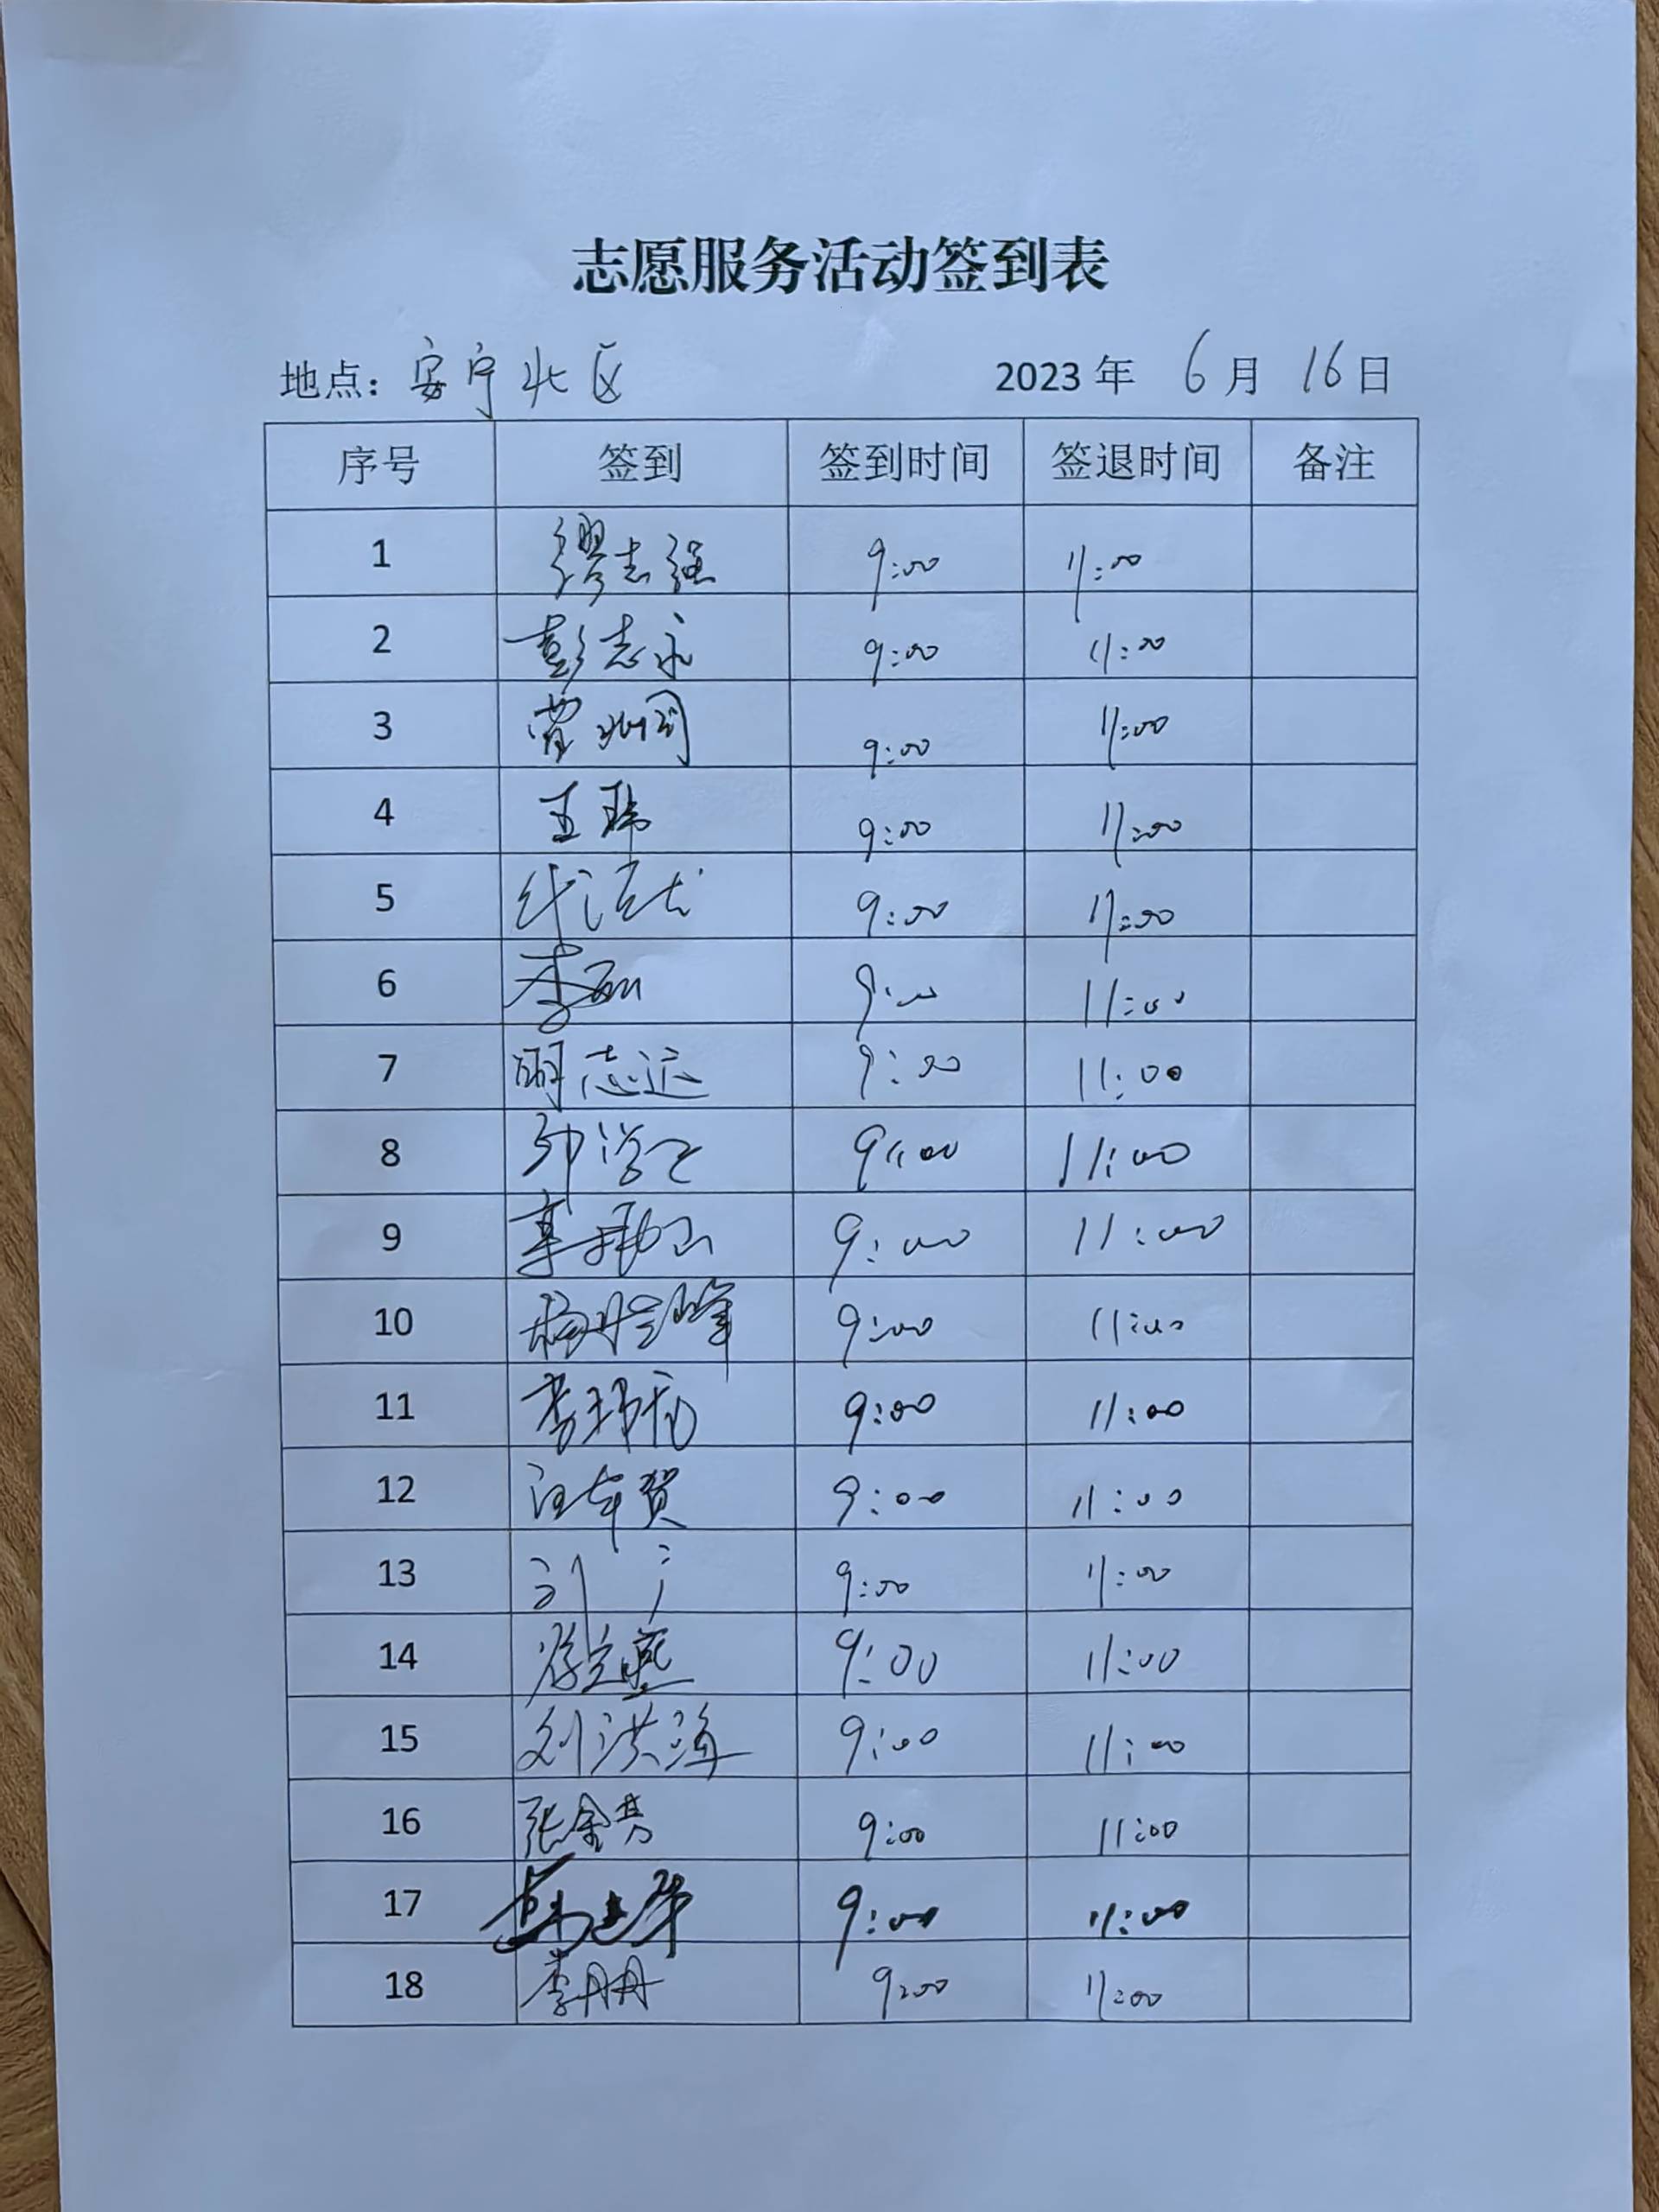 志愿服务活动签到表
地点：安宁北区 2023年 6月 16日
序号 签到 签到时间 签退时间 备注
1 缪志强 9:00 11:00
2 彭志永 9:00 11:00
3 9:00 11:00
4 王玮 9:00 11:00
5 9:00 11:00
6 李 9:00 11:00
7 明志远 9:00 11:00
8 9:00 11:00
9 9:00 11:00
10 杨 峰 9:00 11:00
11 李玮 9:00 11:00
12 汪 贺 9:00 11:00
13 刘 9:00 11:00
14 9:00 11:00
15 刘洪海 9:00 11:00
16 张金芳 9:00 11:00
17 9:00 11:00
18 李丹丹 9:00 11:00